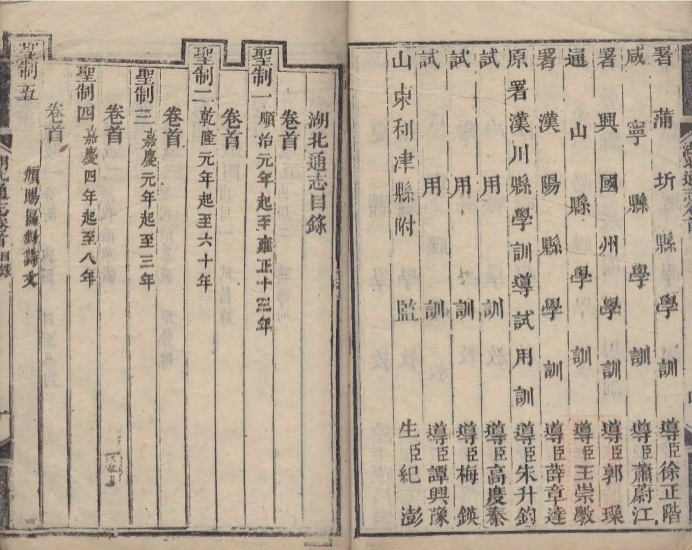 署蒲圻縣學訓導臣徐正階
咸寧縣學訓導臣蕭蔚江
署興國州學訓導臣郭璪
通山縣學訓導臣王崇斆
署漢陽縣學訓導臣薛章達
原署漢川縣學訓導試用訓導臣朱升鈞
試用訓導臣高慶泰
試用訓導臣梅鍈
試用訓導臣譚興豫
山東利津縣附監生臣紀澎
湖北通志目錄
卷首
聖制一順治元年起至雍正十三年
卷首
聖制二乾隆元年起至六十年
卷首
聖制三嘉慶元年起至三年
卷首
聖制四嘉慶四年起至八年
卷首
聖制五頒賜匾對詩文
湖北通志卷首目錄